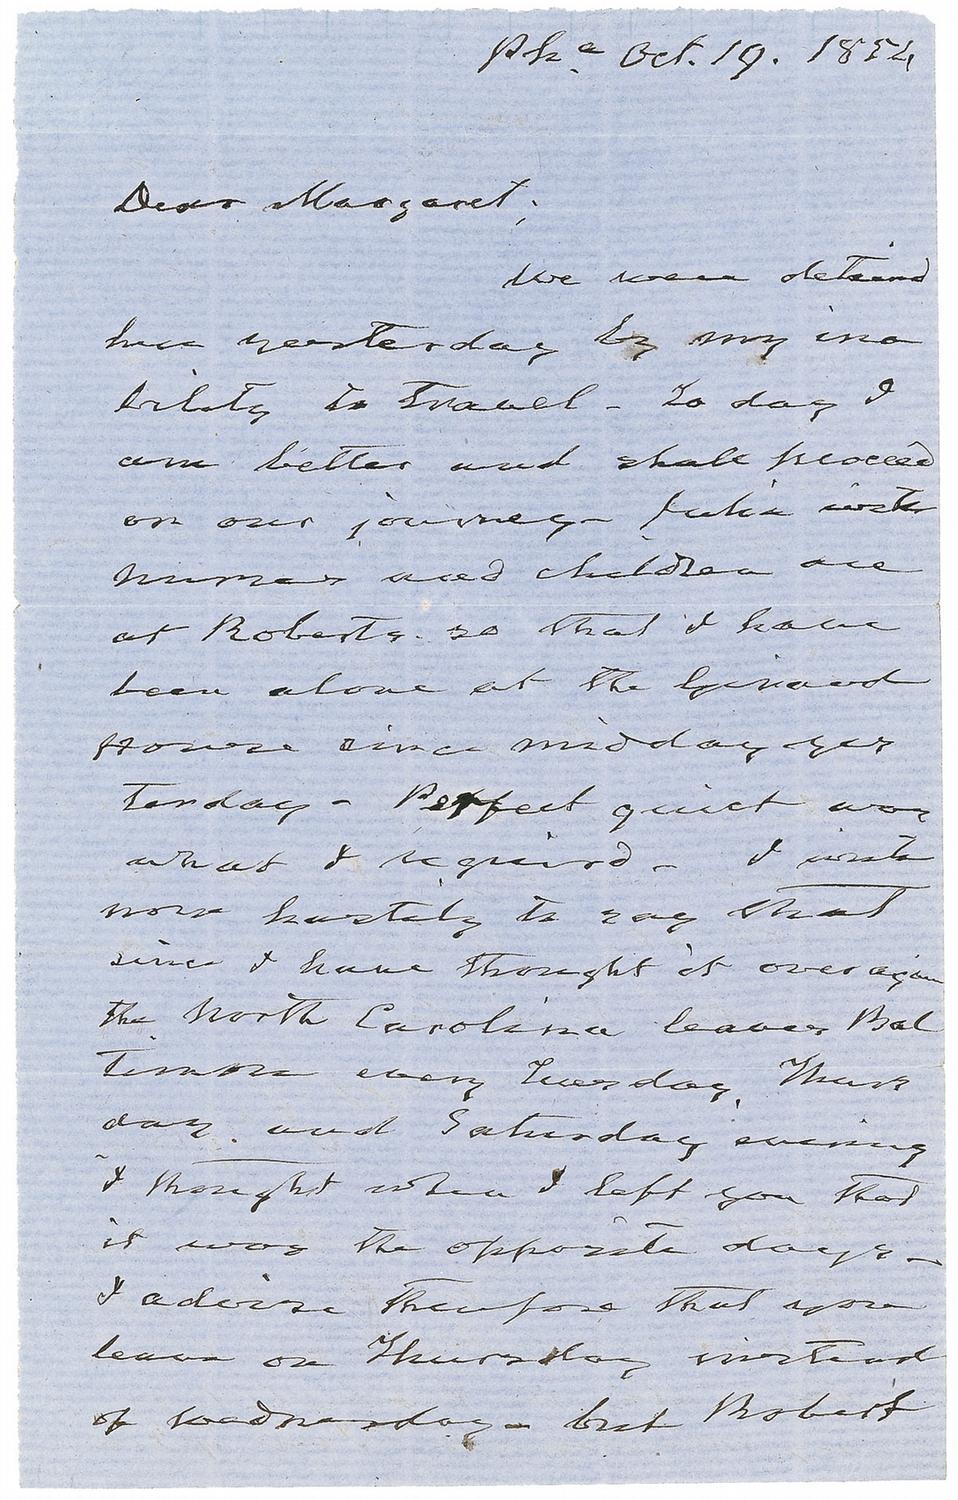 Pha Oct. 19. 1854
Dear Margaret,
We were detained
here yesterday by my ina
bility to Travel - To day I
am better and shall proceed
on our journey - Julia with
nurses and children are
at Roberts. so that I have
been alone at the Girard
House since midday yes
terday - Perfect quiet was
what I required - I write
now hastily to say that
since I have thought it over again
the North Carolina leaves Bal
timore every Tuesday, Thurs
day. and Saturday evening
I thought when I left you that
it was the opposite days -
I advise therefore that you
leave on Thursday instead
of Wednesday - but Robert